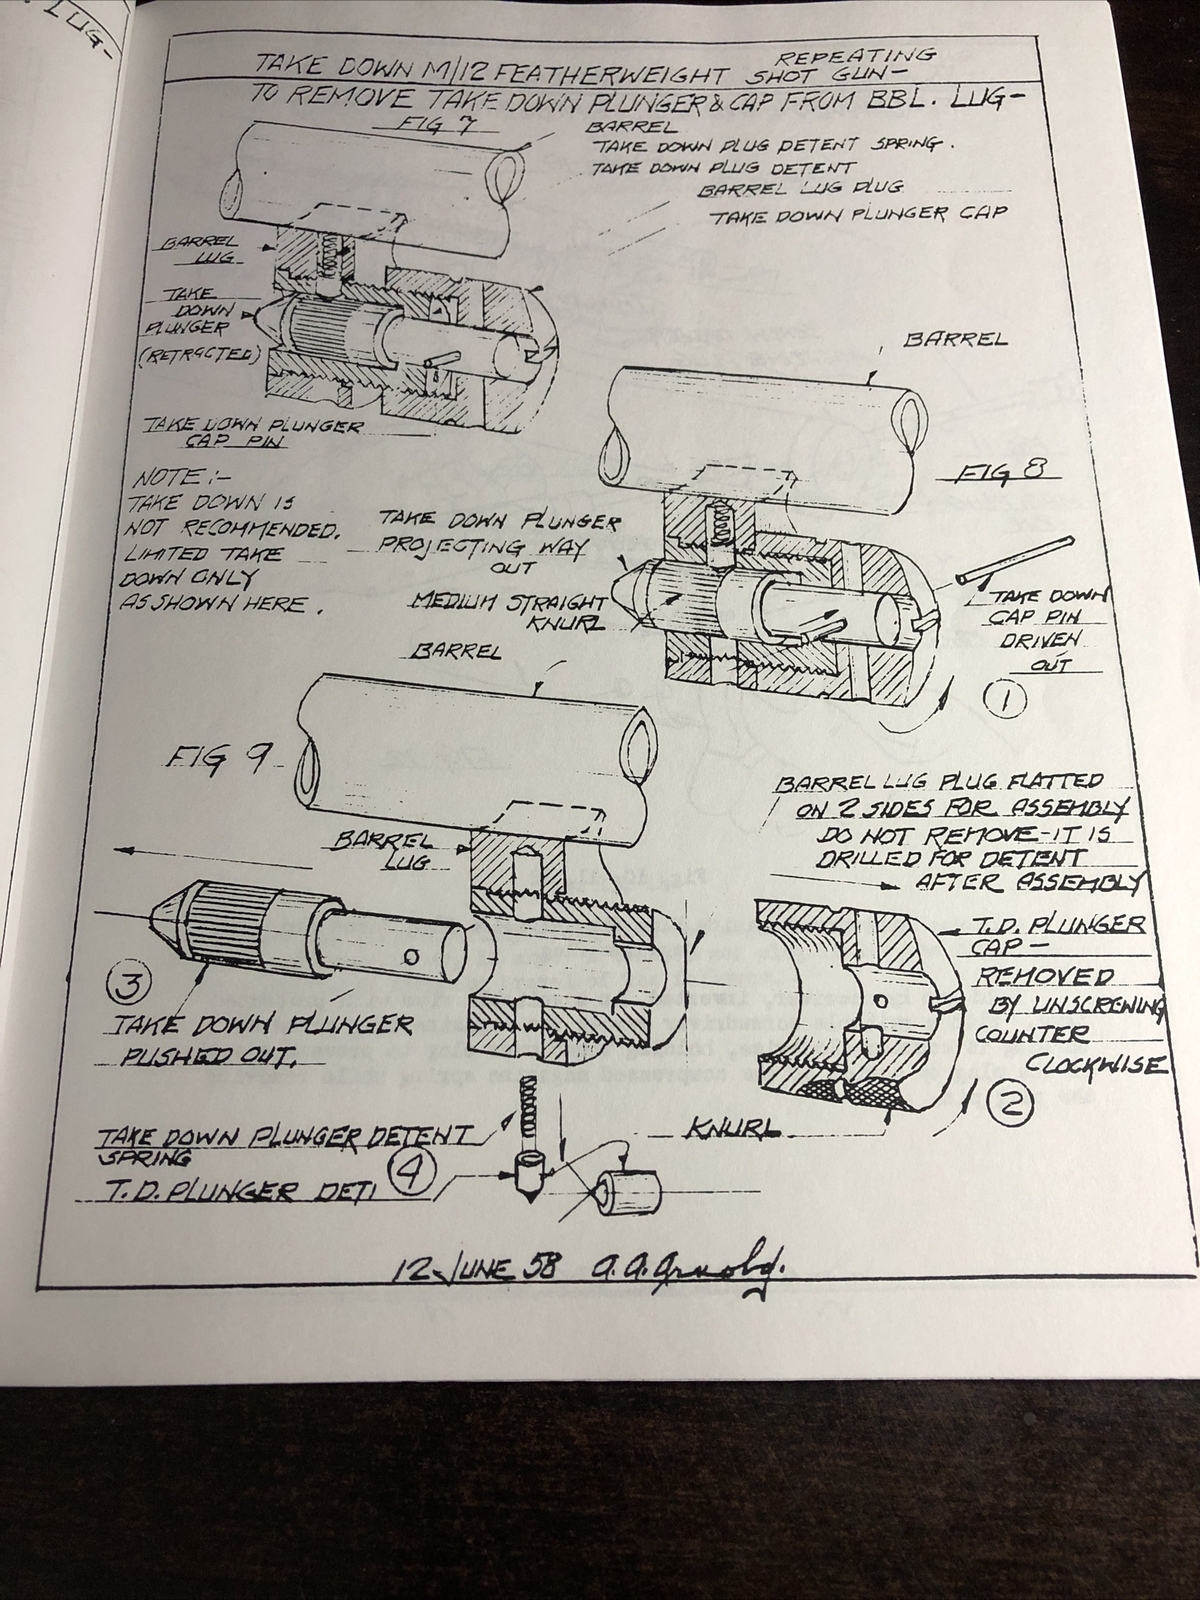 LUG-
TAKE DOWN M/12 FEATHERWEIGHT REPEATING SHOT GUN-
TO REMOVE TAKE DOWN PLUNGER & CAP FROM BBL. LUG-
FIG 7
BARREL
TAKE DOWN PLUG DETENT SPRING.
TAKE DOWN PLUG DETENT
BARREL LUG PLUG
TAKE DOWN PLUNGER CAP
BARREL
LUG
TAKE
DOWN
PLUNGER
(RETRACTED)
TAKE DOWN PLUNGER
CAP PIN
BARREL
FIG 8
NOTE:-
TAKE DOWN IS
NOT RECOMMENDED.
LIMITED TAKE
DOWN ONLY
AS SHOWN HERE.
TAKE DOWN PLUNGER
PROJECTING WAY
OUT
MEDIUM STRAIGHT
KNURL
TAKE DOWN
CAP PIN
DRIVEN
OUT
1
BARREL
FIG 9
BARREL
LUG
BARREL LUG PLUG FLATTED
ON 2 SIDES FOR ASSEMBLY
DO NOT REMOVE-IT IS
DRILLED FOR DETENT
AFTER ASSEMBLY
T.D. PLUNGER
CAP-
REMOVED
BY UNSCREWING
COUNTER
CLOCKWISE
2
3
TAKE DOWN PLUNGER
PUSHED OUT.
KNURL
TAKE DOWN PLUNGER DETENT
SPRING
4
T.D. PLUNGER DETI
12 JUNE 58 A.A. Arnold.